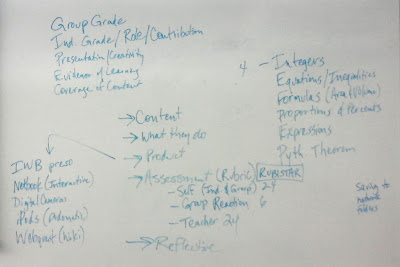 Group Grade
Ind. Grade/Role/Contribution
Presentation/Creativity
Evidence of Learning
Coverage of Content
→ Content
→ What they do
→ Product
→ Assessment (Rubric) RUBISTAR
- Self (Ind. & Group) 24
- Group Reaction 6
- Teacher 24
→ Reflective
IWB preso
Netbook (Interactive)
Digital Cameras
iPods (podomatic)
Webquest (wiki)
4 - Integers
Equations/Inequalities
Formulas (Area & Volume)
Proportions & Percents
Expressions
Pyth Theorem
Saving to
network
folders